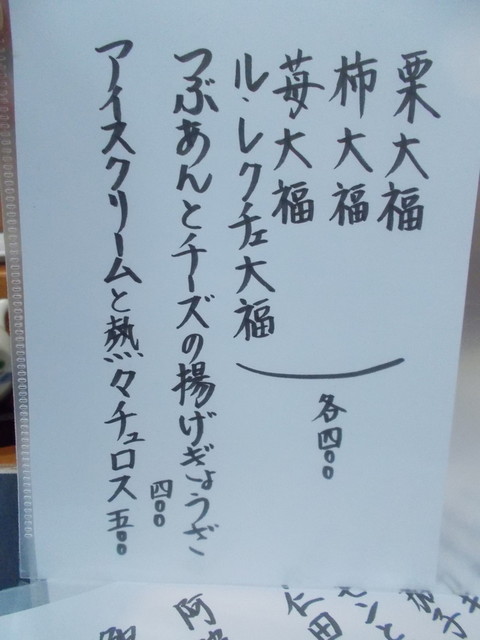 栗大福
柿大福
苺大福
ル・レクチェ大福
各四〇〇
つぶあんとチーズの揚げぎょうざ
四〇〇
アイスクリームと熱々チュロス 五〇〇